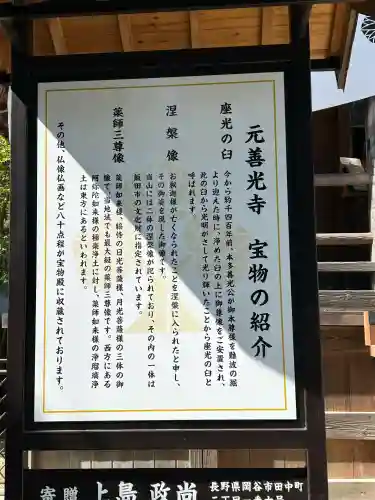 元善光寺　宝物の紹介
座光の臼
今から約千四百年前、本多善光公が御本尊様を難波の堀
より迎えた時に、浄めた臼の上に御尊像をご安置され、
此の臼から光明がさして光り輝いたことから座光の臼と
呼ばれます。
涅槃像
お釈迦様が亡くなられたことを涅槃に入られたと申し、
その御姿を現した御像です。
当山には二体の涅槃像が祀られており、その内の一体は
飯田市の文化財に指定されています。
薬師三尊像
薬師如来様、脇侍の日光菩薩様、月光菩薩様の三体の御
像で、当地域でも最大級の薬師三尊像です。西方にある
阿弥陀如来様の極楽浄土に対し、薬師如来様の浄瑠璃浄
土は東方にあるといわれます。
その他、仏像仏画など八十点程が宝物殿に収蔵されております。
長野県岡谷市田中町
二丁目一番十号
寄贈　上島　政尚